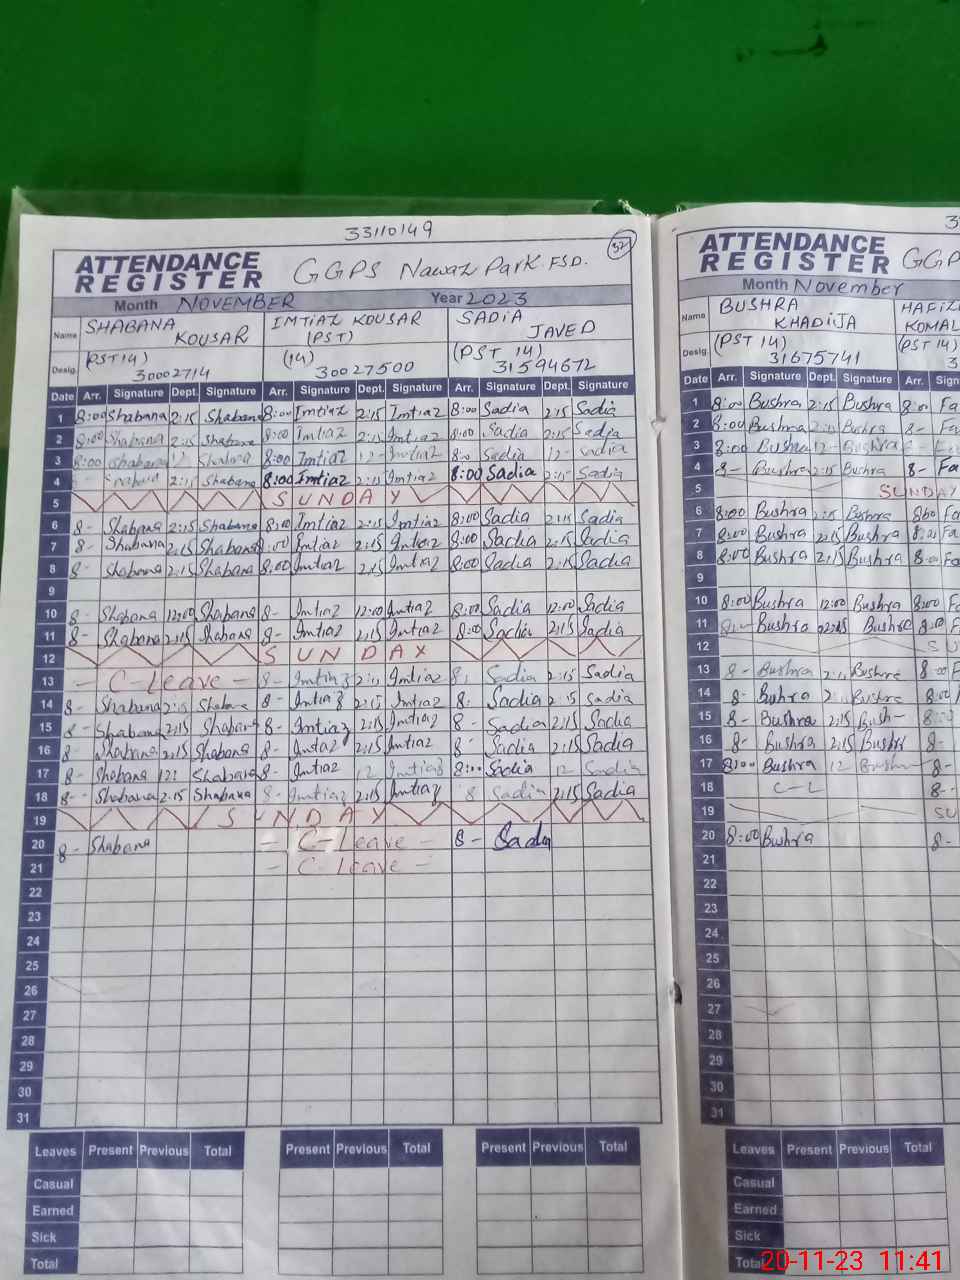 33110149
37
ATTENDANCE REGISTER GGPS Nawaz Park FSD.
Month NOVEMBER Year 2023
Name SHABANA KOUSAR IMTIAZ KOUSAR (PST) SADIA JAVED
Desig. (PST 14) 30002714 (14) 30027500 (PST 14) 31594672
Date Arr. Signature Dept. Signature Arr. Signature Dept. Signature Arr. Signature Dept. Signature
1 8:00 Shabana 2:15 Shabana 8:00 Imtiaz 2:15 Imtiaz 8:00 Sadia 2:15 Sadia
2 8:00 Shabana 2:15 Shabana 8:00 Imtiaz 2:15 Imtiaz 8:00 Sadia 2:15 Sadia
3 8:00 Shabana 12 Shabana 8:00 Imtiaz 12- Imtiaz 8:0 Sadia 12- Sadia
4 Shabana 2:15 Shabana 8:00 Imtiaz 2:15 Imtiaz 8:00 Sadia 2:15 Sadia
5 SUNDAY
6 8- Shabana 2:15 Shabana 8:00 Imtiaz 2:15 Imtiaz 8:00 Sadia 2:15 Sadia
7 8- Shabana 2:15 Shabana 8:00 Imtiaz 2:15 Imtiaz 8:00 Sadia 2:15 Sadia
8 8- Shabana 2:15 Shabana 8:00 Imtiaz 2:15 Imtiaz 8:00 Sadia 2:15 Sadia
9
10 8- Shabana 12:00 Shabana 8- Imtiaz 12:00 Imtiaz 8:00 Sadia 12:00 Sadia
11 8- Shabana 2:15 Shabana 8- Imtiaz 2:15 Imtiaz 8:00 Sadia 2:15 Sadia
12 SUNDAY
13 - C-Leave - 8- Imtiaz 2:15 Imtiaz 8: Sadia 2:15 Sadia
14 8- Shabana 2:15 Shabana 8- Imtiaz 2:15 Imtiaz 8: Sadia 2:15 Sadia
15 8- Shabana 2:15 Shabana 8- Imtiaz 2:15 Imtiaz 8- Sadia 2:15 Sadia
16 8- Shabana 2:15 Shabana 8- Imtiaz 2:15 Imtiaz 8- Sadia 2:15 Sadia
17 8- Shabana 12 Shabana 8- Imtiaz 12 Imtiaz 8:00 Sadia 12 Sadia
18 8- Shabana 2:15 Shabana 8- Imtiaz 2:15 Imtiaz 8 Sadia 2:15 Sadia
19 SUNDAY
20 8- Shabana - C-Leave - 8- Sadia
21 - C-Leave -
22
23
24
25
26
27
28
29
30
31
Leaves Present Previous Total Present Previous Total Present Previous Total
Casual
Earned
Sick
Total
ATTENDANCE REGISTER
Month November
Name BUSHRA KHADIJA
Desig. (PST 14) 31675741 (PST 14)
Date Arr. Signature Dept. Signature Arr.
1 8:00 Bushra 2:15 Bushra 8:00
2 8:00 Bushra 2:15 Bushra 8-
3 8:00 Bushra 12- Bushra 8-
4 8- Bushra 2:15 Bushra 8-
5 SUNDAY
6 8:00 Bushra 2:15 Bushra
7 8:00 Bushra 2:15 Bushra
8 8:00 Bushra 2:15 Bushra 8:00
9
10 8:00 Bushra 12:00 Bushra 8:00
11 Bushra 2:15 Bushra 8:00
12
13 8- Bushra 2:15 Bushra 8:00
14 8- Bushra 2:15 Bushra 8:00
15 8- Bushra 2:15 Bush-
16 8- Bushra 2:15 Bushra 8-
17 8:00 Bushra 12 Bushra 8-
18 C-L 8-
19
20 8:00 Bushra 8-
21
22
23
24
25
26
27
28
29
30
31
Leaves Present Previous Total
Casual
Earned
Sick
Total
20-11-23 11:41